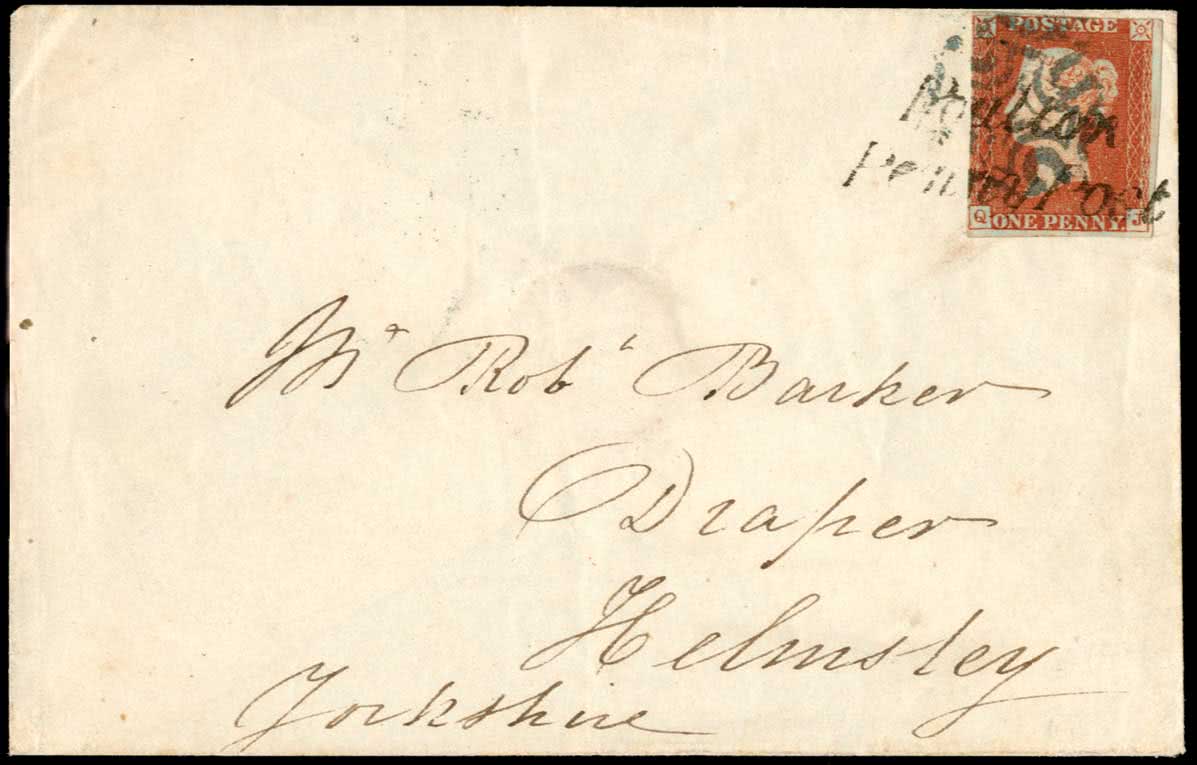 POSTAGE
Penny Post
Q ONE PENNY. J
Mr Robt Barker
Draper
Helmsley
Yorkshire